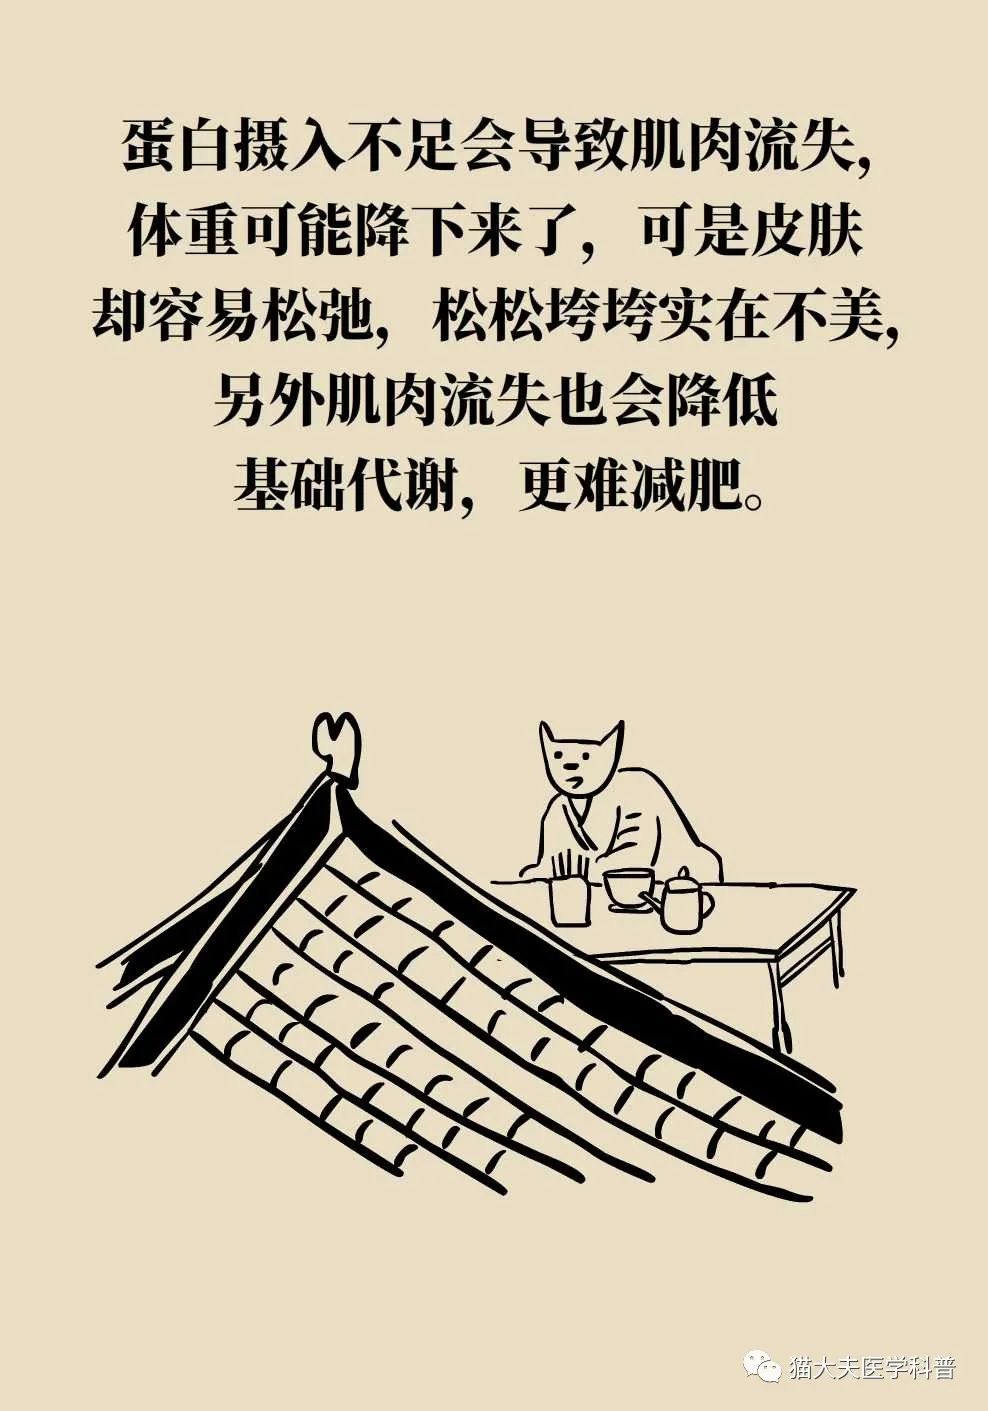 蛋白摄入不足会导致肌肉流失，
体重可能降下来了，可是皮肤
却容易松弛，松松垮垮实在不美，
另外肌肉流失也会降低
基础代谢，更难减肥。
猫大夫医学科普